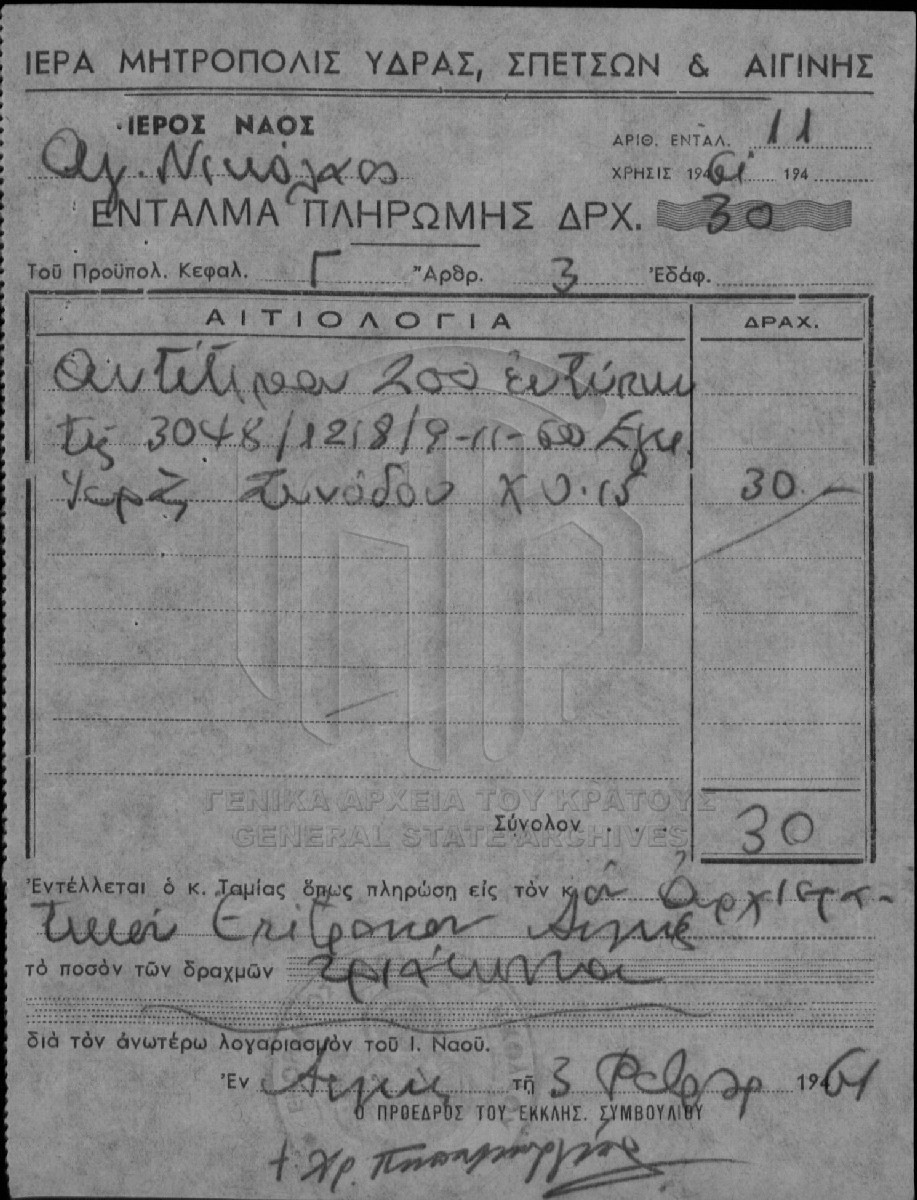 ΙΕΡΑ ΜΗΤΡΟΠΟΛΙΣ ΥΔΡΑΣ, ΣΠΕΤΣΩΝ & ΑΙΓΙΝΗΣ
ΙΕΡΟΣ ΝΑΟΣ
ΑΡΙΘ. ΕΝΤΑΛ. 11
Αγ. Νικόλαος
ΧΡΗΣΙΣ 1961 194
ΕΝΤΑΛΜΑ ΠΛΗΡΩΜΗΣ ΔΡΧ. 30
Τοῦ Προϋπολ. Κεφαλ. Γ Ἄρθρ. 3 Ἐδάφ.
ΑΙΤΙΟΛΟΓΙΑ ΔΡΑΧ.
200 ἐντύπων
τῆς 3048/1218/9-11-60 Εγκ.
Ἱερᾶς Συνόδου Χ 0.15 30
ΓΕΝΙΚΑ ΑΡΧΕΙΑ ΤΟΥ ΚΡΑΤΟΥΣ
Σύνολον . . . 30
GENERAL STATE ARCHIVES
Ἐντέλλεται ὁ κ. Ταμίας ὅπως πληρώση εἰς τὸν κον Ἀρχιερα-
τικὸν Επίτροπον Αιγίνης
τὸ ποσὸν τῶν δραχμῶν τριάκοντα
διὰ τὸν ἀνωτέρω λογαριασμὸν τοῦ Ι. Ναοῦ.
Ἐν Αιγίνῃ τῇ 3 Φεβρ 1961
Ο ΠΡΟΕΔΡΟΣ ΤΟΥ ΕΚΚΛΗΣ. ΣΥΜΒΟΥΛΙΟΥ